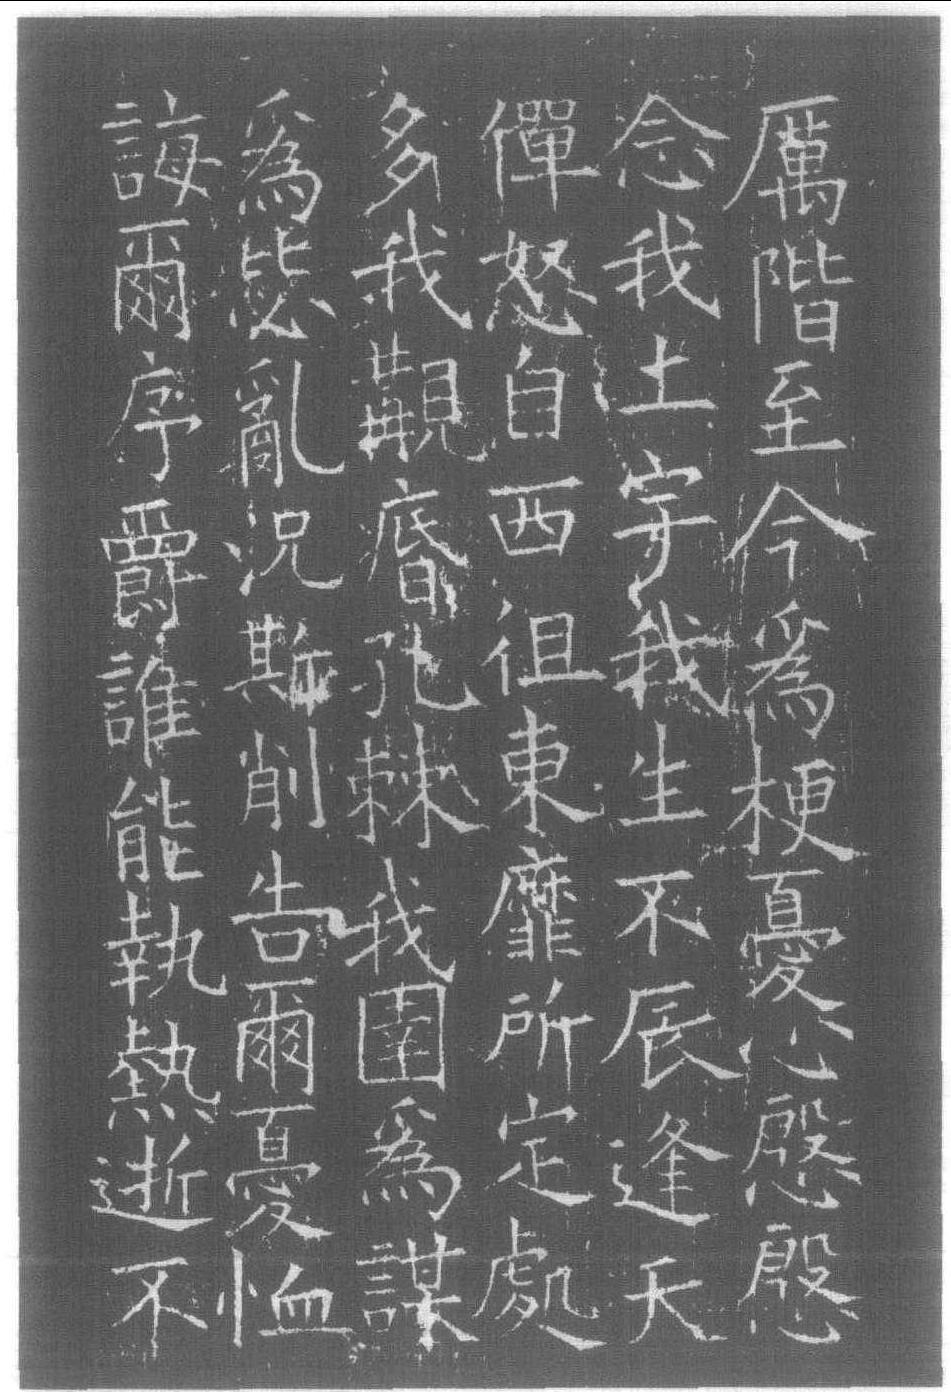 厲階至今為梗憂心慇慇
念我土宇我生不辰逢天
僤怒自西徂東靡所定處
多我觀痻孔棘我圉為謀
為毖亂況斯削告爾憂恤
誨爾序爵誰能執熱逝不